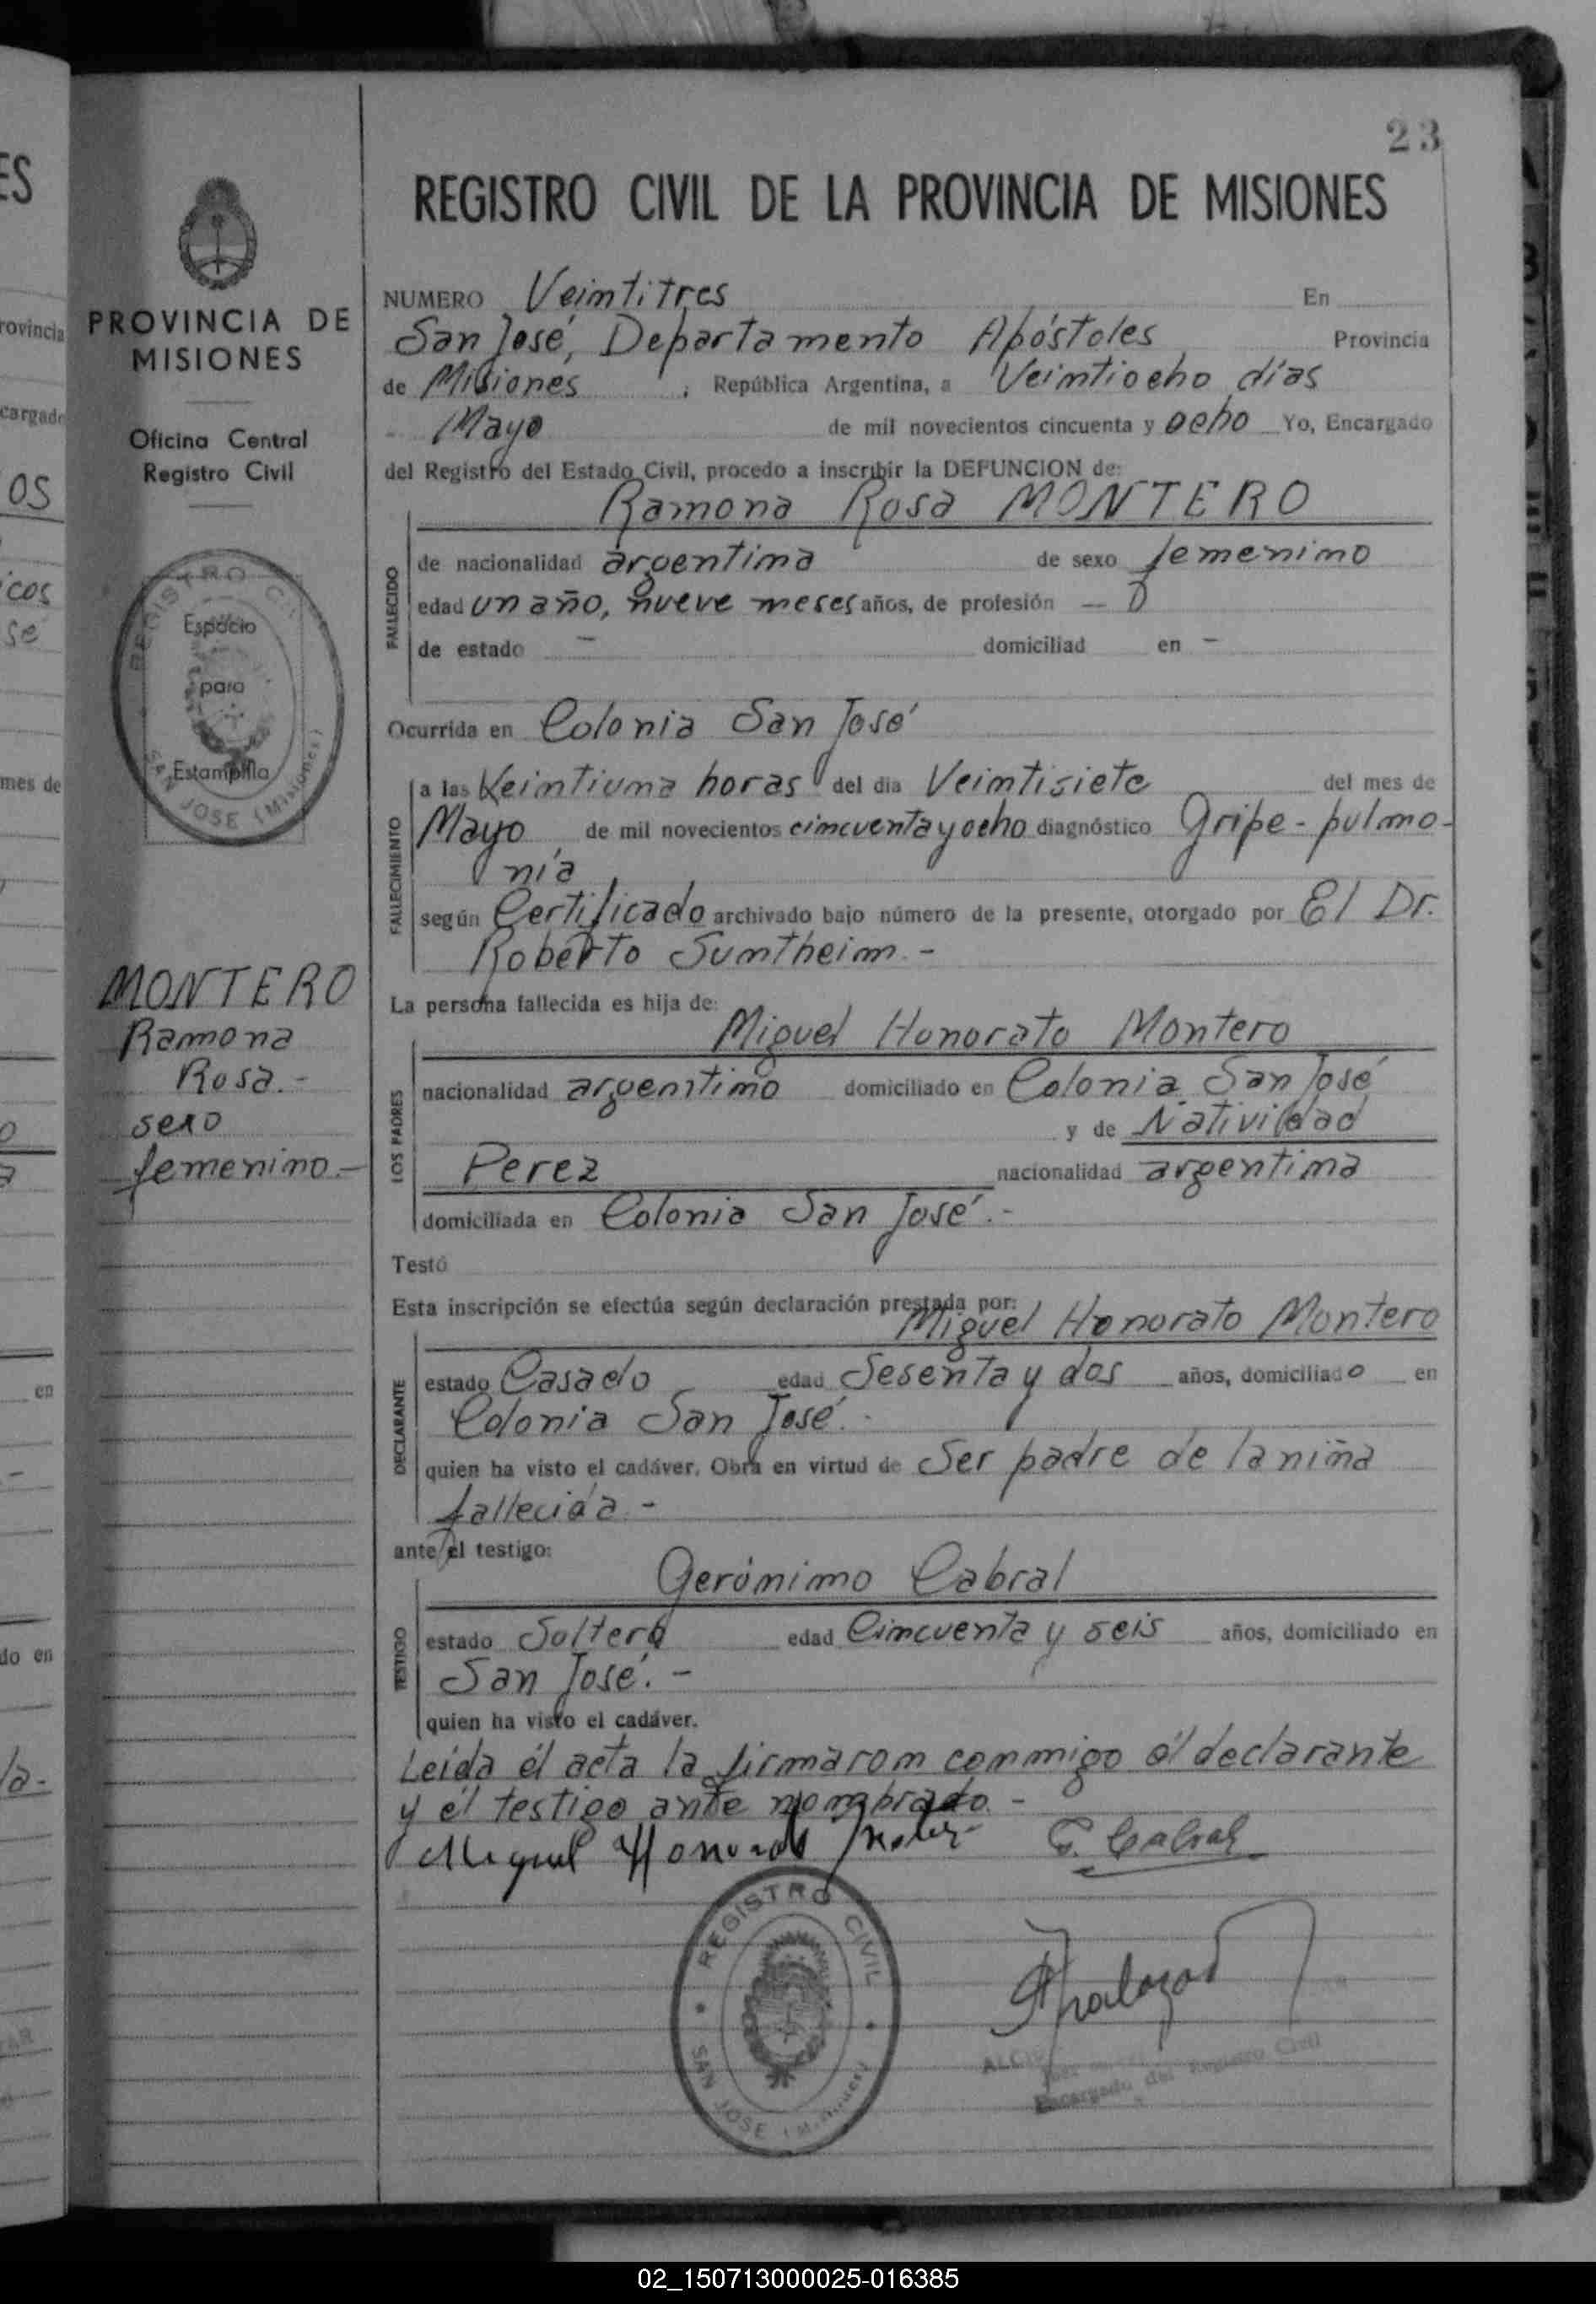 23
REGISTRO CIVIL DE LA PROVINCIA DE MISIONES
PROVINCIA DE
MISIONES
Oficina Central
Registro Civil
REGISTRO CI
Espacio
para
Estampilla
SAN JOSE (Misiones)
MONTERO
Ramona
Rosa.-
sexo
femenino.-
NUMERO Veintitres En
San José, Departamento Apóstoles Provincia
de Misiones , República Argentina, a Veintiocho días
Mayo de mil novecientos cincuenta y ocho Yo, Encargado
del Registro del Estado Civil, procedo a inscribir la DEFUNCION de:
Ramona Rosa MONTERO
FALLECIDO
de nacionalidad argentina de sexo femenino
edad un año, nueve meses años, de profesión —
de estado — domiciliad en —
Ocurrida en Colonia San José
FALLECIMIENTO
a las Veintiuna horas del dia Veintisiete del mes de
Mayo de mil novecientos cincuenta y ocho diagnóstico Gripe - pulmo-
nía
según Certificado archivado bajo número de la presente, otorgado por El Dr.
Roberto Suntheim.-
La persona fallecida es hija de:
Miguel Honorato Montero
LOS PADRES
nacionalidad argentino domiciliado en Colonia San José
y de Natividad
Perez nacionalidad argentina
domiciliada en Colonia San José.-
Testó
Esta inscripción se efectúa según declaración prestada por:
Miguel Honorato Montero
DECLARANTE
estado Casado edad Sesenta y dos años, domiciliado en
Colonia San José.-
quien ha visto el cadáver. Obra en virtud de Ser padre de la niña
fallecida.-
ante el testigo:
Gerónimo Cabral
TESTIGO
estado Soltero edad Cincuenta y seis años, domiciliado en
San José.-
quien ha visto el cadáver.
Leída él acta la firmaron conmigo él declarante
y él testigo ante nombrado.-
Miguel Honorato G. Cabral
REGISTRO CIVIL
SAN JOSE (Misiones)
Encargado del Registro Civil
02_150713000025-016385